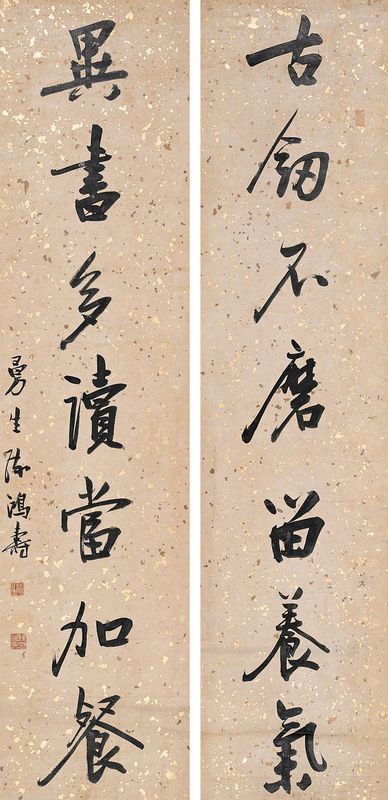 古釼不磨留養氣
異書多讀當加餐
曼生陳鴻壽